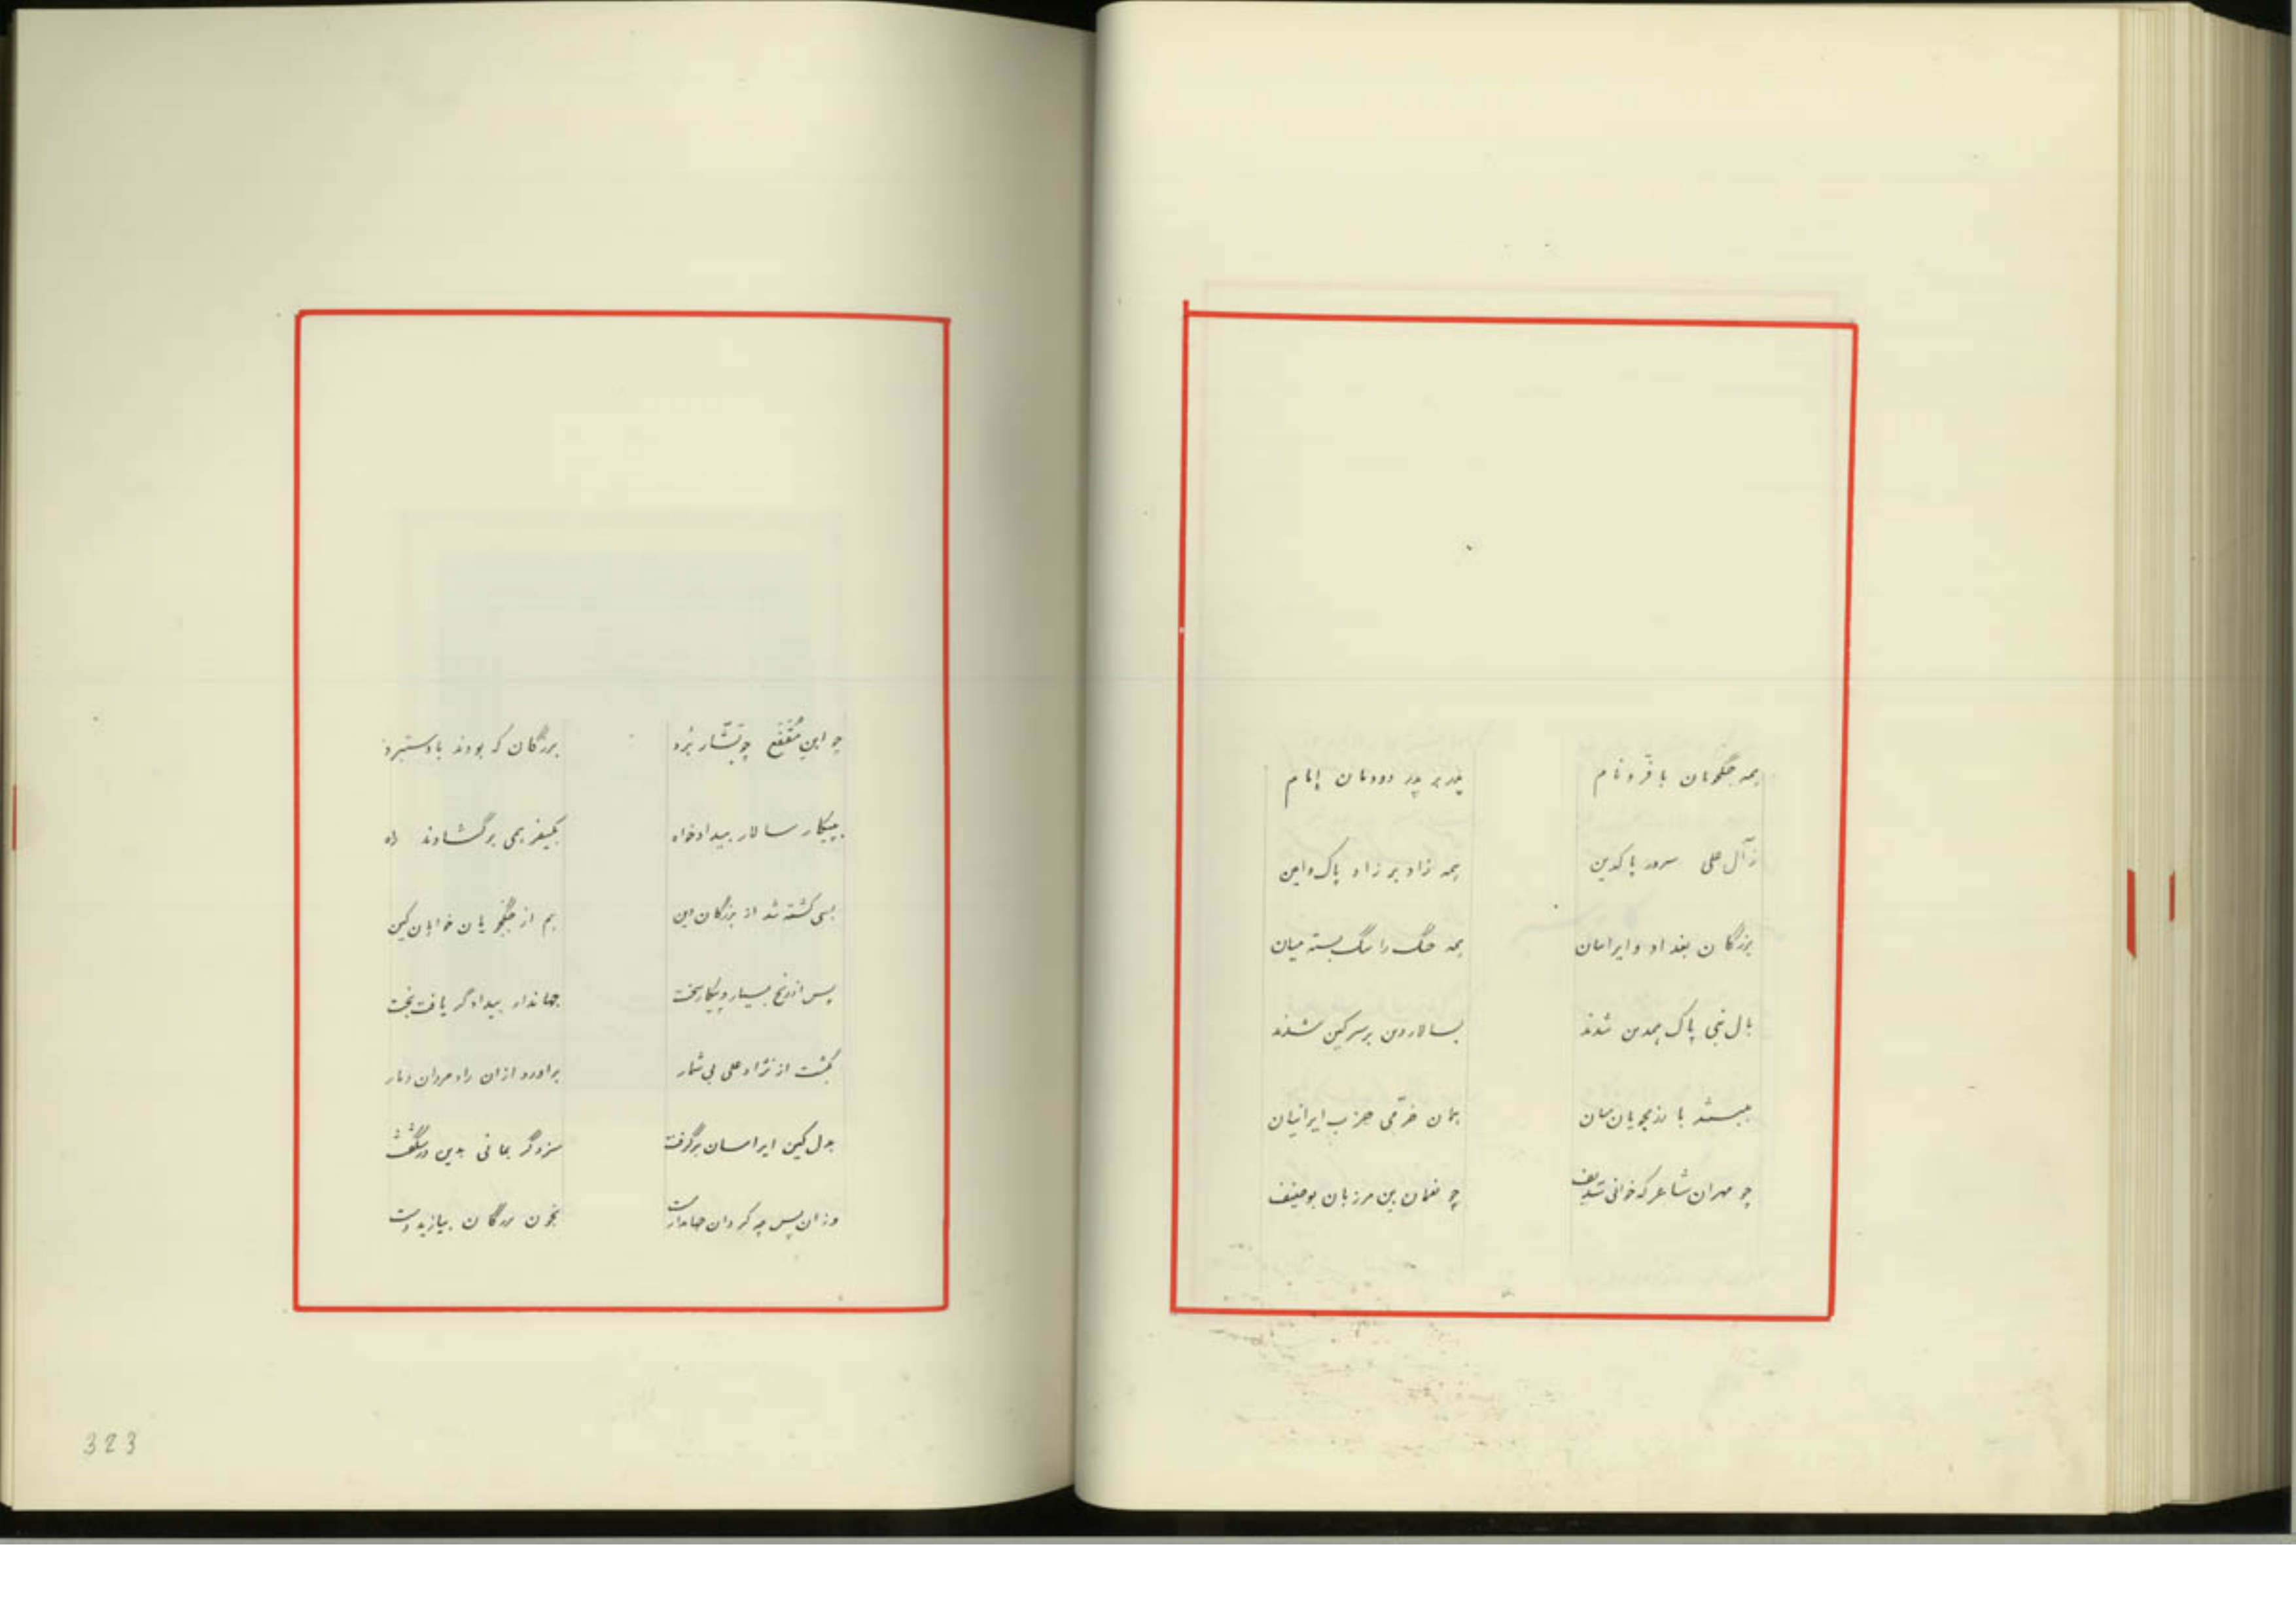 همه جنگجویان با فرّ و نام    پدر بر پدر دودمان امام
ز آل علی سرور پاکدین    همه زاد بر زاد پاک و امین
بزرگان بغداد و ایرانیان    همه جنگ را تنگ بسته میان
بال نبی پاک همدین شدند    بسالار دون بر سر کین شدند
ببستند با رزمجویان میان    بمان خرّمی حزب ایرانیان
چو مهران شاعر که خوانی    چو نعمان بن مرزبان بوحنیف
چو ابن مُقفّع چو بشّار بُرد    بزرگان که بودند با دستبرد
بپیکار سالار بیدادخواه    بکیفر همی برگشادند راه
بسی کشته شد از بزرگان دین    هم از جنگجویان خواهان کین
پس از رنج بسیار و پیکار سخت    جهاندار بیدادگر یافت تخت
بکشت از نژاد علی بی شمار    برآورد از آن رادمردان دمار
بدل کین ایرانیان برگرفت    سزد گر بمانی بدین در شگفت
وزان پس چه گردان    بخون بزرگان بیازید دست
323